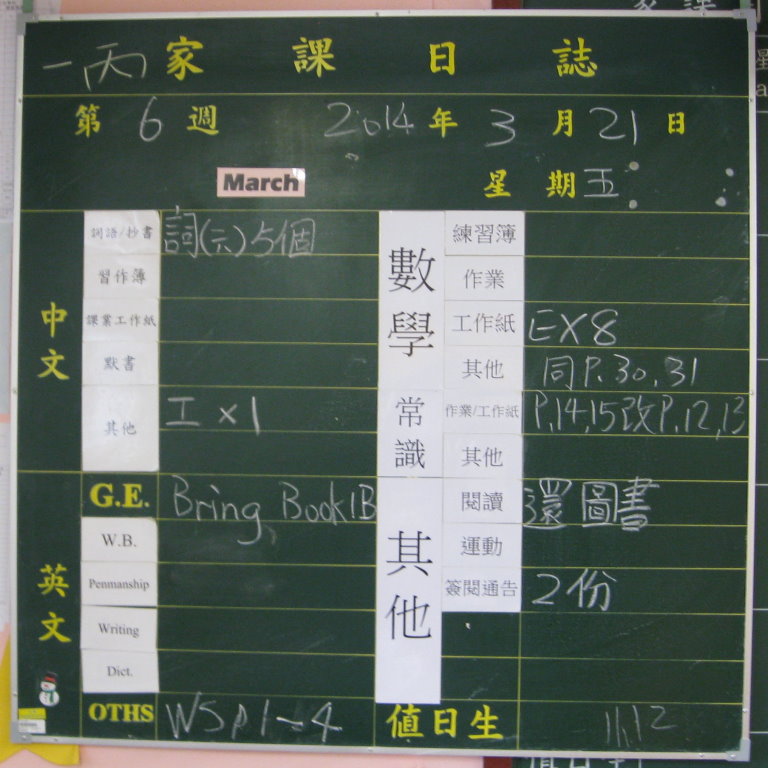 一丙 家課日誌
第 6 週 2014 年 3 月 21 日
March 星期五
中文
詞語/抄書 詞(六)5個
習作簿
課業工作紙
默書
其他 工x1
英文
G.E. Bring Book 1B
W.B.
Penmanship
Writing
Dict.
OTHS WS p1~4
數學
練習簿
作業
工作紙 EX8
其他 同P.30,31
常識
作業/工作紙 P.14,15改P.12,13
其他
其他
閱讀 還圖書
運動
簽閱通告 2份
值日生 11,12